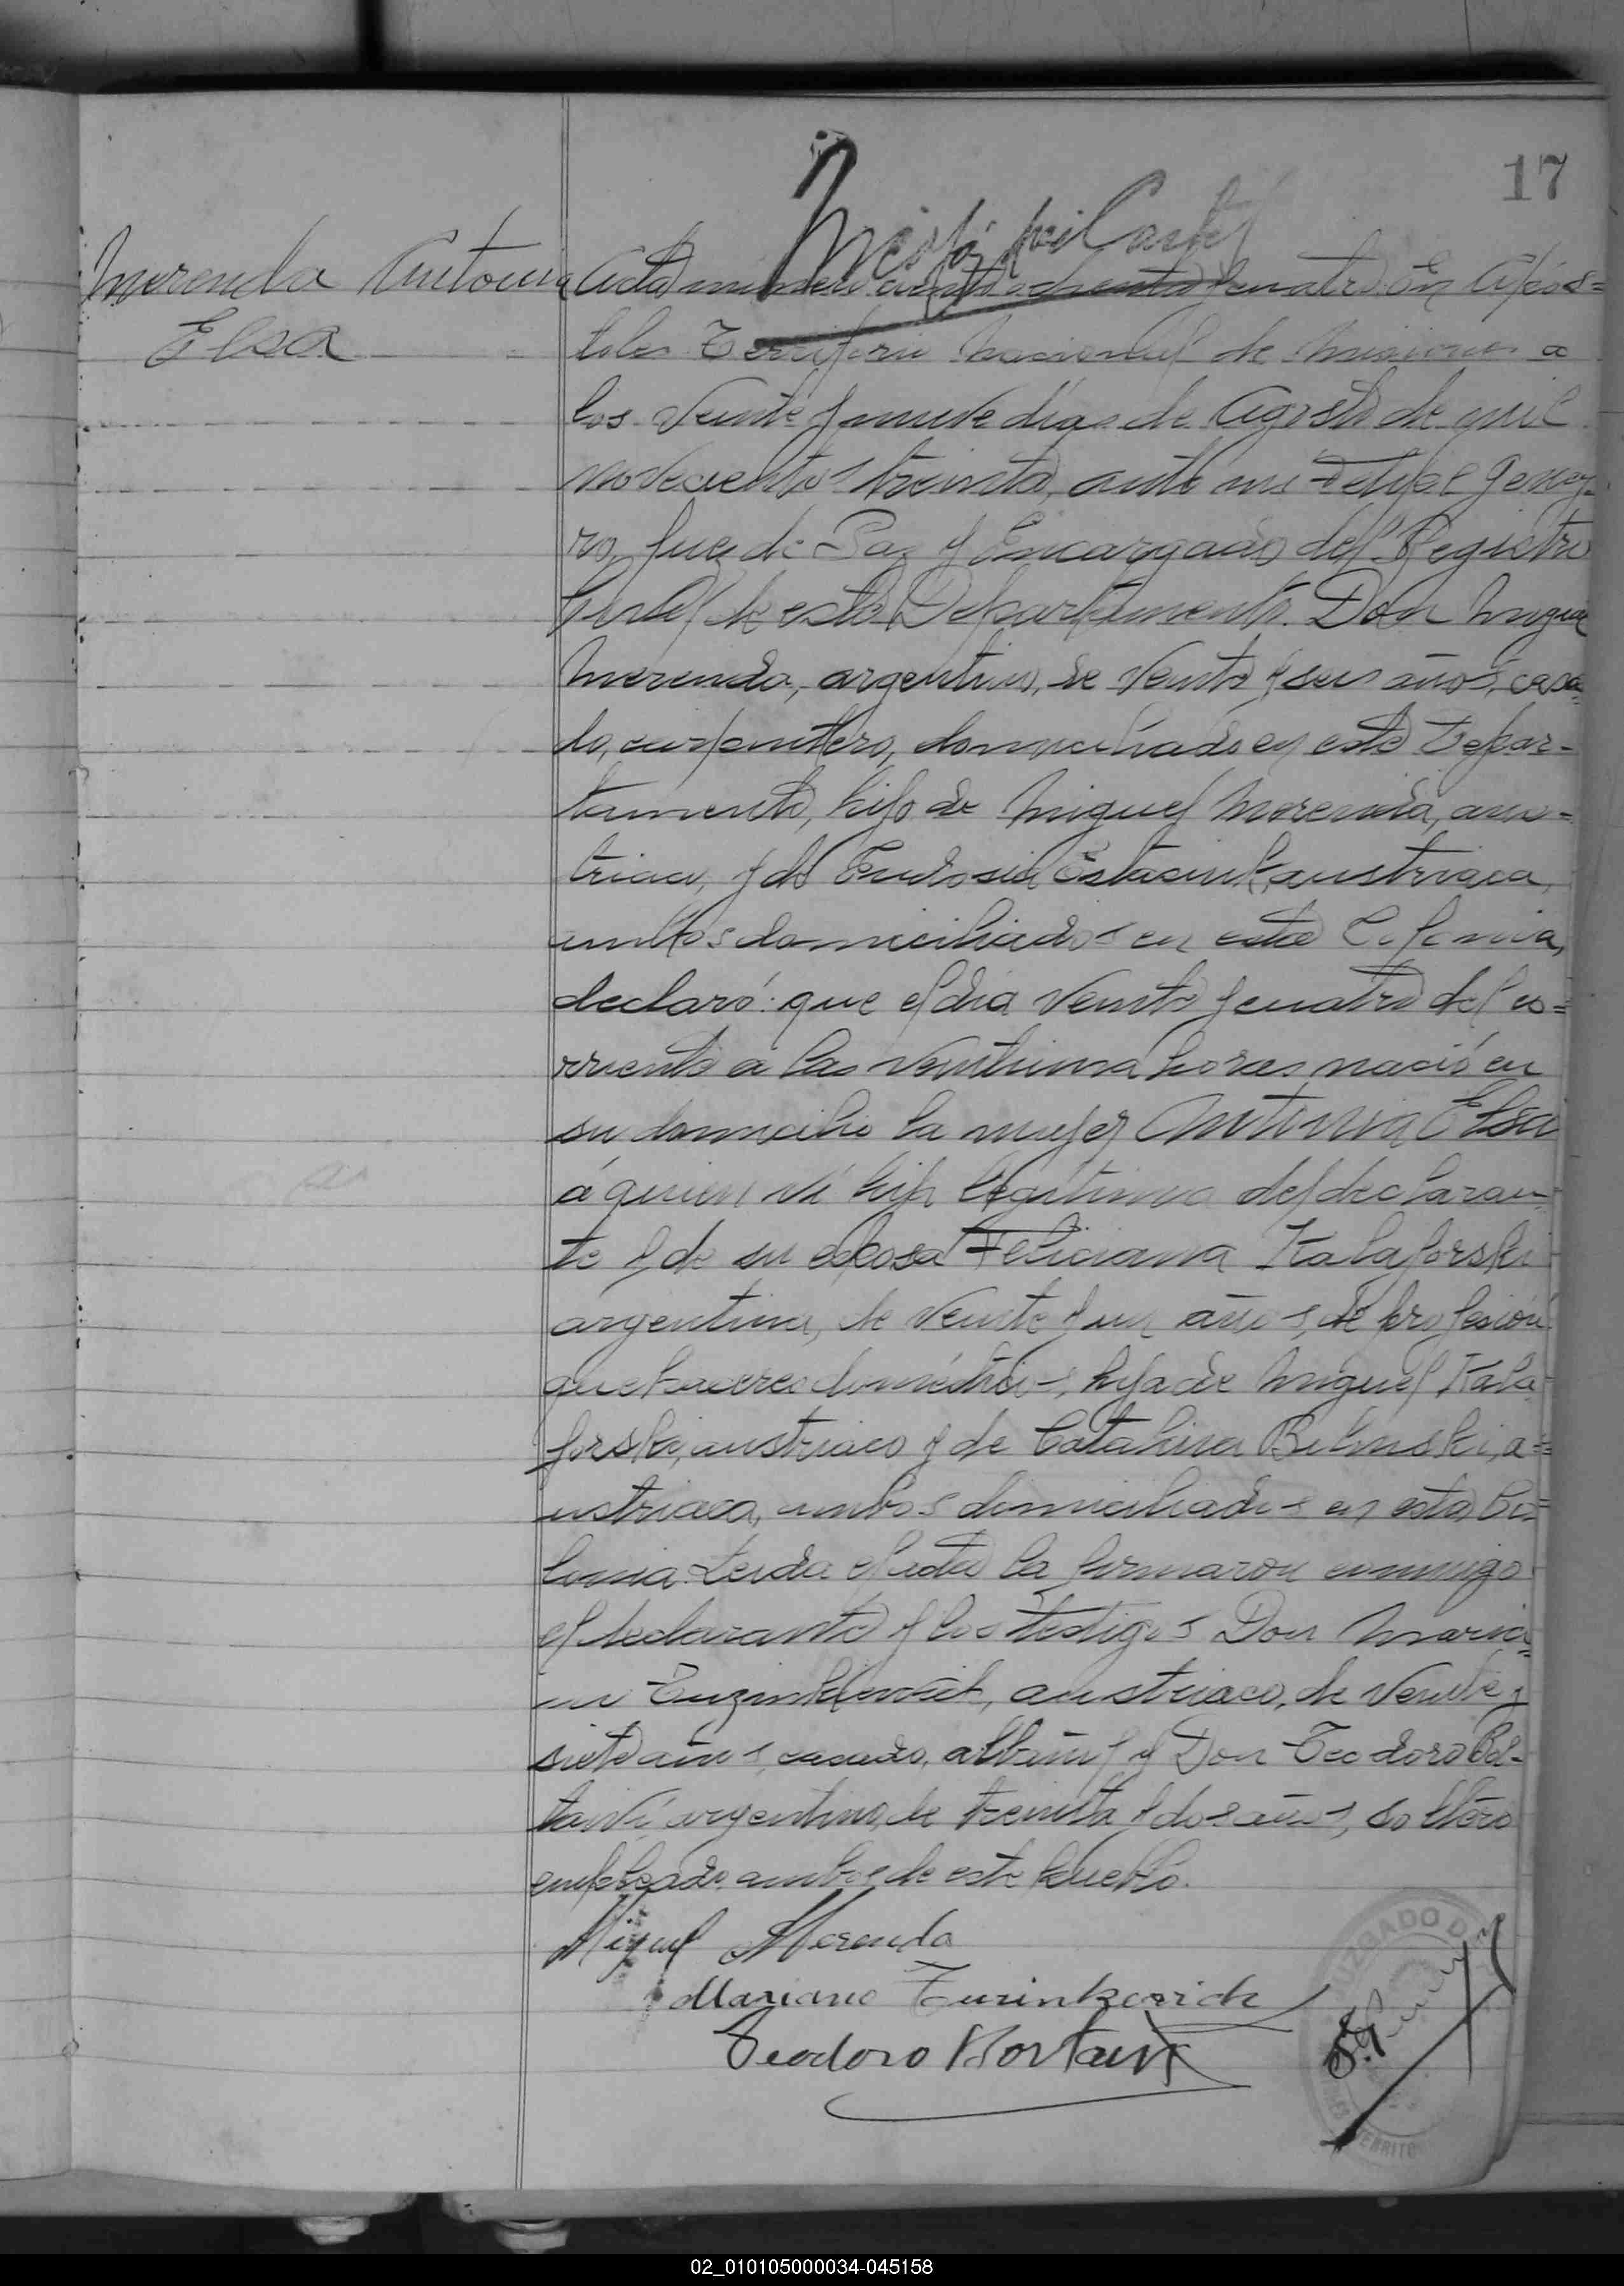 17
Merenda Antonia
Elsa
Acta número ciento ochenta y cuatro. En Após=
toles Territorio Nacional de Misiones a
los veinte y nueve días de Agosto de mil
novecientos treinta, ante mi
ro, Juez de Paz y Encargado del Registro
Civil de este Departamento. Don Miguel
Merenda, argentino, de veinte y seis años, casa=
do, carpintero, domiciliado en este Depar-
tamento, hijo de Miguel Merenda, aus=
triaco, y de Eudosia austriaca,
ambos domiciliados en esta Colonia,
declaró: que el día veinte y cuatro del co=
rriente a las veintiuna horas nació en
su domicilio la mujer Antonia Elsa
á quien ví hija legítima del declaran-
te y de su esposa Feliciana Kalaforski
argentina, de veinte y un años, de profesión
quehaceres domésticos, hija de Miguel Kala-
forski, austriaco y de Catalina Bilinski, a=
ustriaca, ambos domiciliados en esta Co=
lonia. Leida el acta la firmaron conmigo
el declarante y los testigos Don Maria=
no austriaco, de veinte y
siete años, casado, albañil y Don Teodoro
argentino, de treinta y dos años, soltero
empleado, ambos de este pueblo.
Miguel Merenda
Mariano Turinkovich
Teodoro
JUZGADO D
TERRITO
02_010105000034-045158